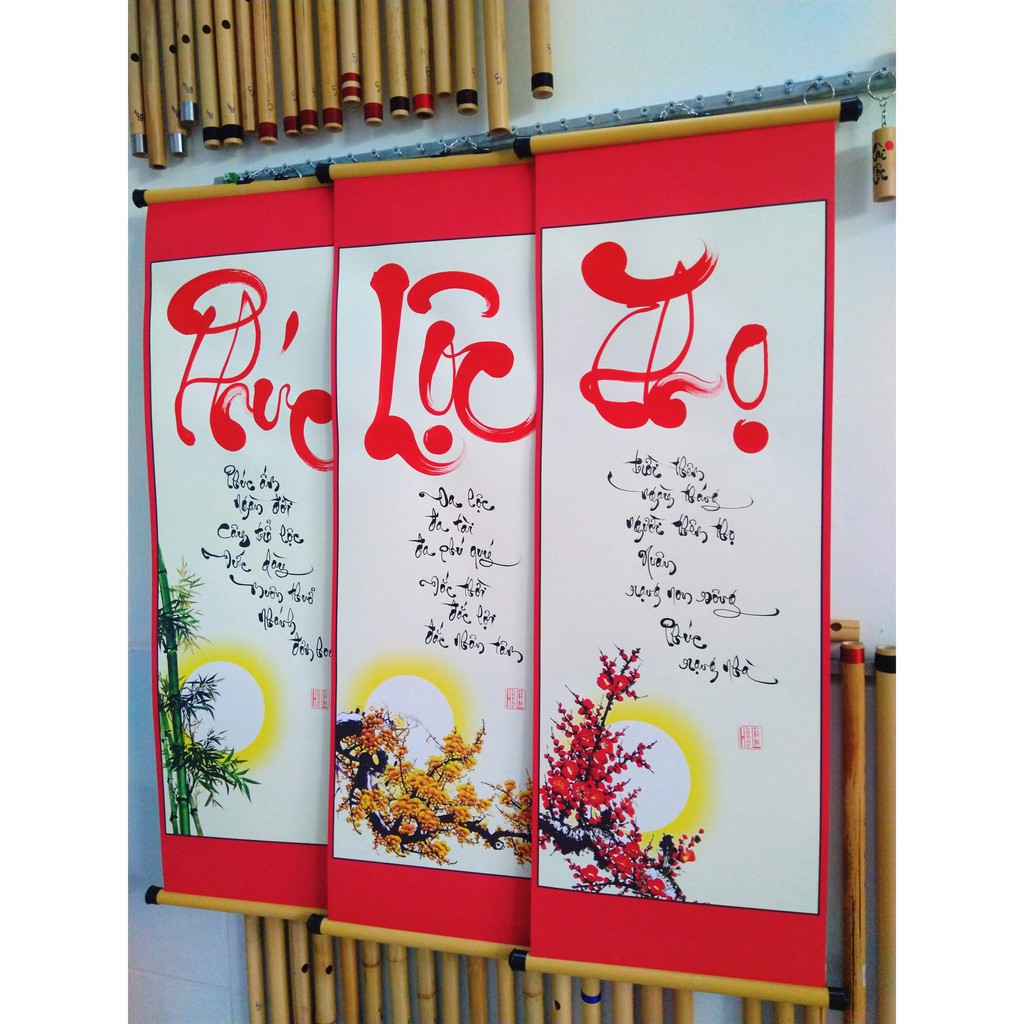 Phúc
Phúc ấm
ngàn đời
Cây tổ lộc
Đức dày
muôn thuở
Nhánh
Lộc
Đa lộc
đa tài
đa phú quý
Đắc thời
đắc lợi
đắc nhân tâm
Thọ
tuổi thêm
ngày tháng
người thêm thọ
Xuân
rạng non sông
Phúc
rạng nhà
Tài
Lộc